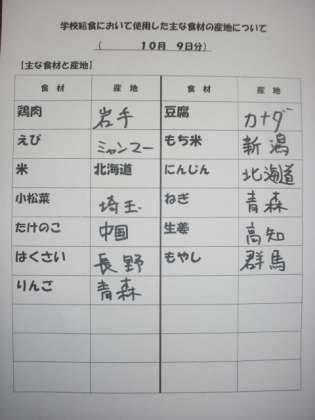 学校給食において使用した主な食材の産地について
( 10月 9日分)
【主な食材と産地】
食材 産地 食材 産地
鶏肉 岩手 豆腐 カナダ
えび ミャンマー もち米 新潟
米 北海道 にんじん 北海道
小松菜 埼玉 ねぎ 青森
たけのこ 中国 生姜 高知
はくさい 長野 もやし 群馬
りんご 青森